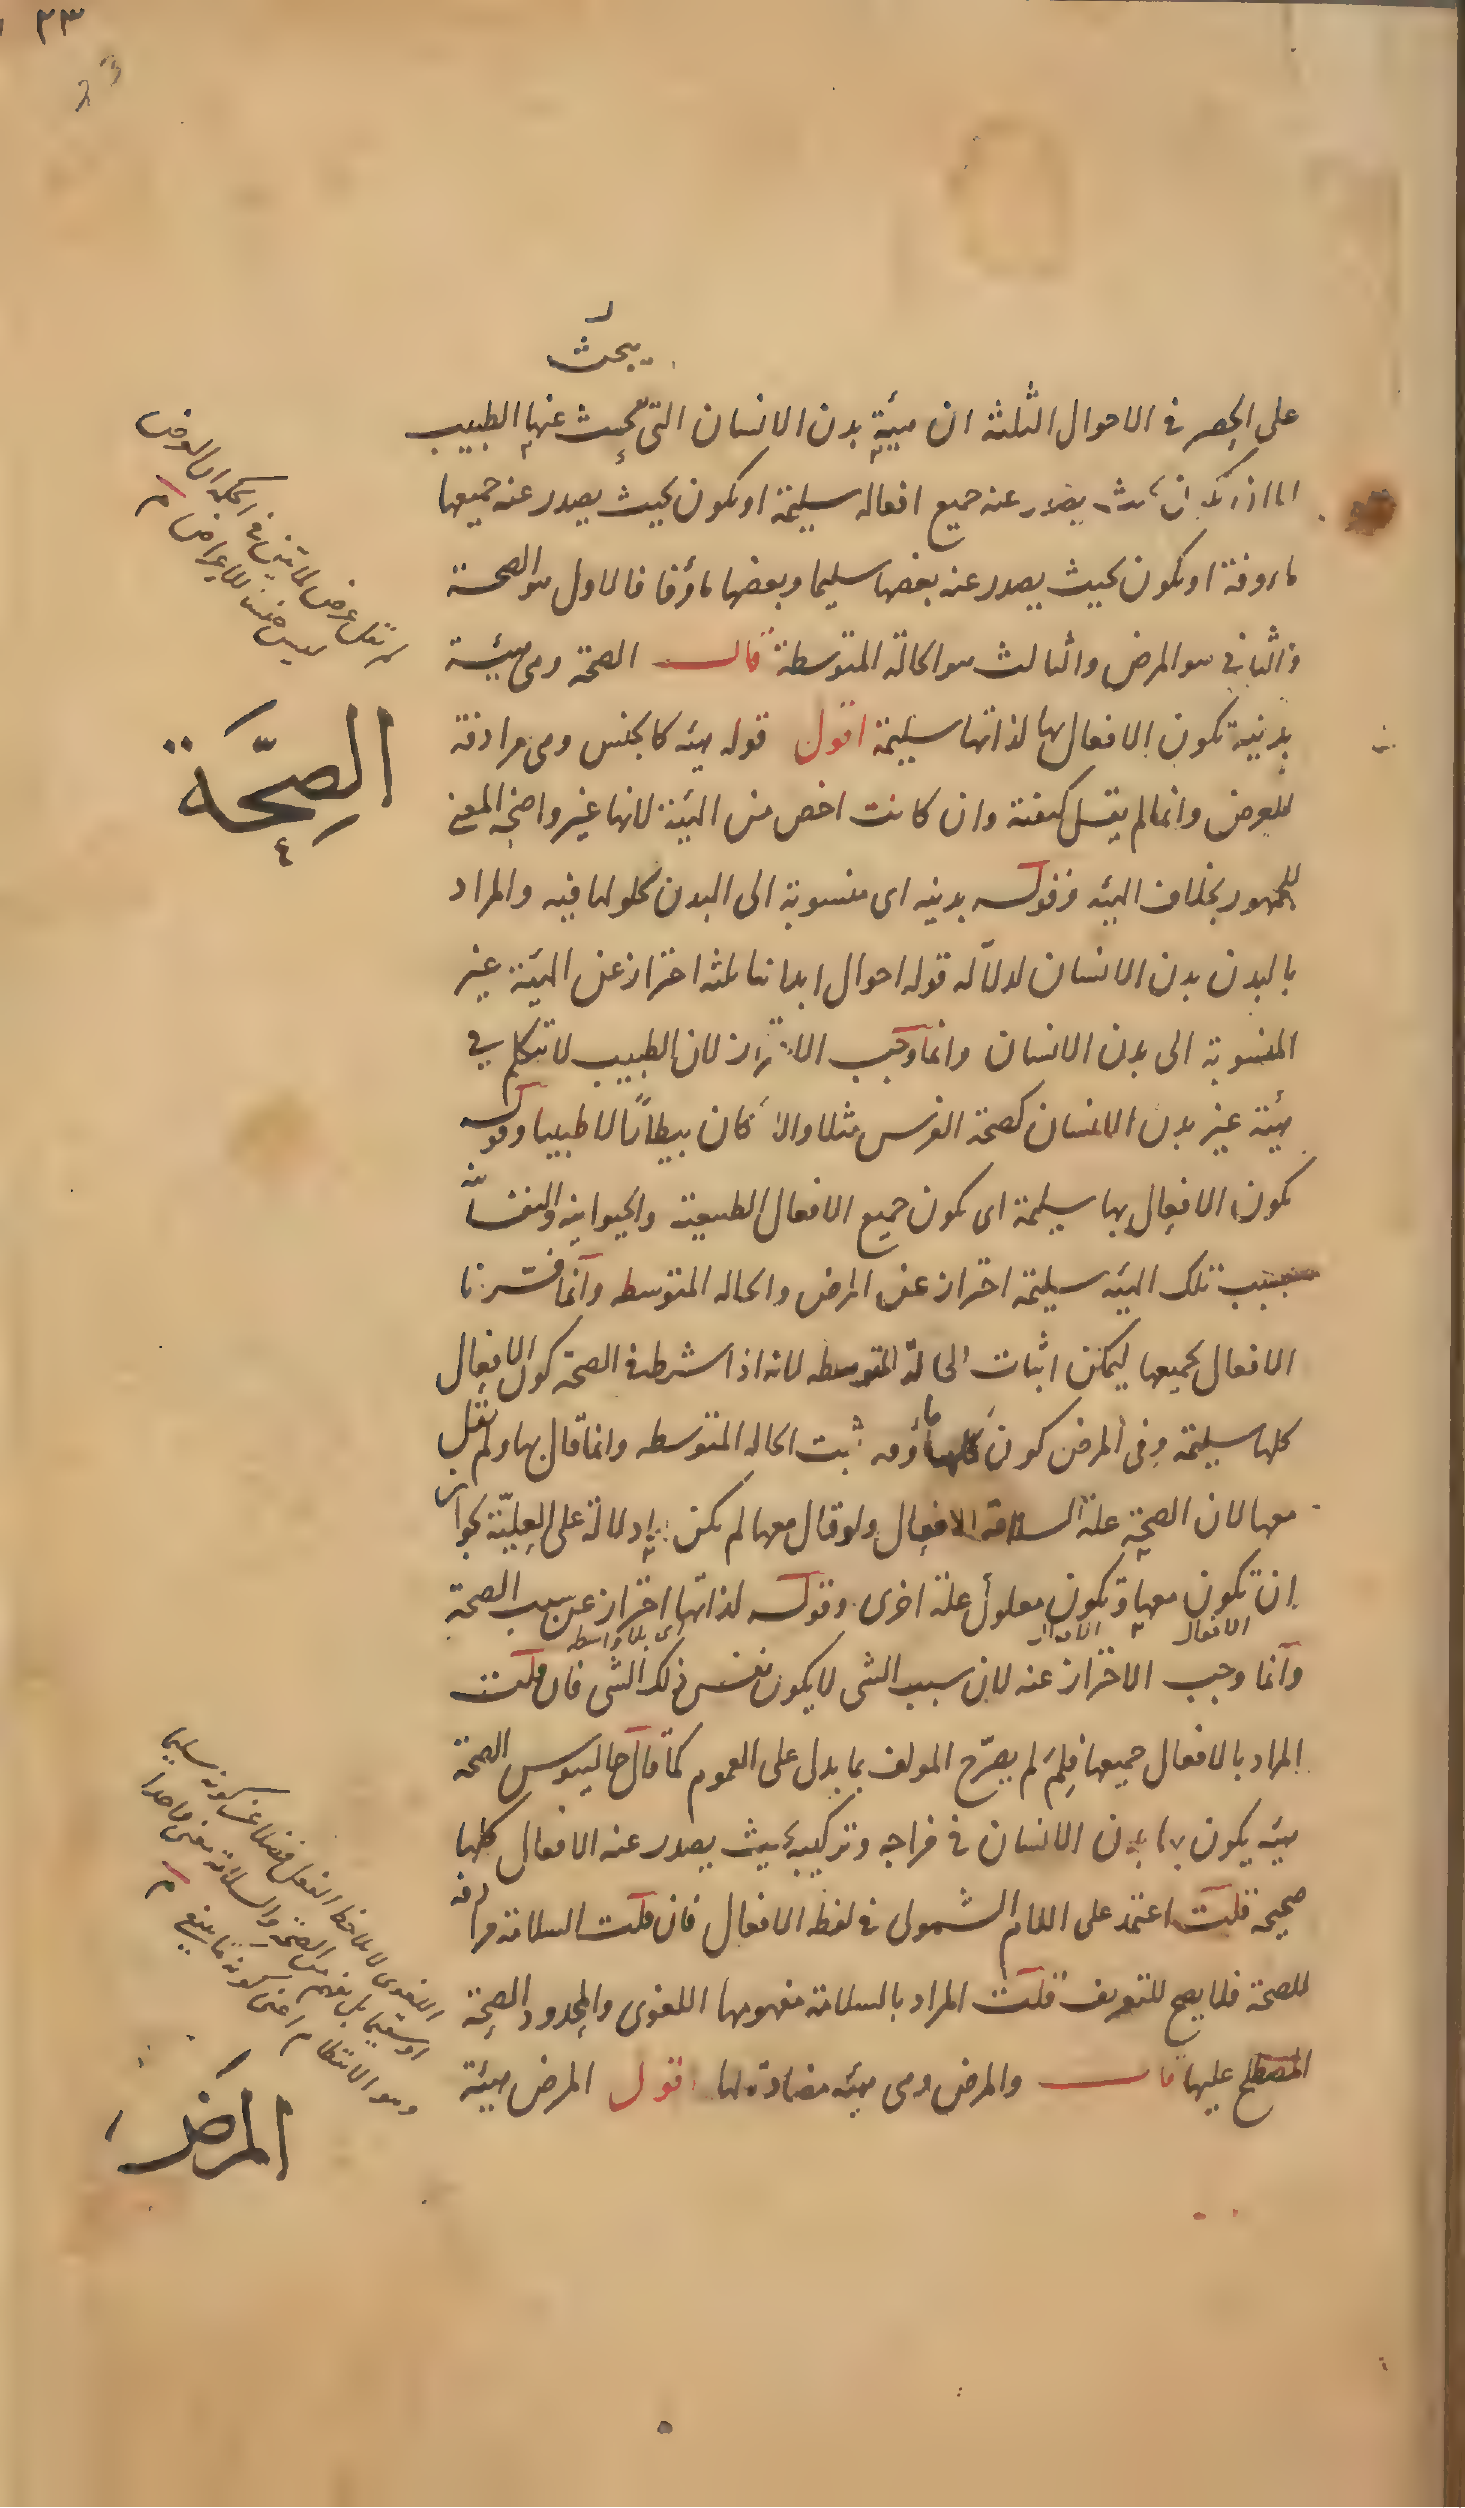 ٢٣
23
يبحث
على الحصر في الاحوال الثلثة ان هيئة بدن الانسان التى يبحث عنها الطبيب
اما ان يكون بحيث يصدر عنه جميع افعاله سليمة او يكون بحيث يصدر عنه جميعها
ماروفة او يكون بحيث يصدر عنه بعضها سليما وبعضها مأوفا فالاول هو الصحة
والثاني هو المرض والثالث هو الحالة المتوسطة قال الصحة وهى هيئة
بدنية تكون الافعال بها لذاتها سليمة اقول قوله هيئه كالجنس وهى مرادفة
للعرض وانما لم يقل كيفية وان كانت اخص من الهيئة لانها غير واضحه المعنى
للجمهور بخلاف الهيئه وقوله بدنيه اى منسوبة الى البدن لحلولها فيه والمراد
بالبدن بدن الانسان لدلالة قوله احوال ابداننا ثلثه احتراز عن الهيئة غير
المنسوبة الى بدن الانسان وانما وجب الاحتراز لان الطبيب لا يتكلم في
هيئة غير بدن الانسان كصحة الفرس مثلا والا كان بيطارا لا طبيبا وقوله
تكون الافعال بها سليمة اى تكون جميع الافعال الطبيعية والحيوانيه والنفسانية
بسبب تلك الهيئه سليمة احتراز عن المرض والحاله المتوسطه وانما فسرنا
الافعال بجميعها ليمكن اثبات الحالة المتوسطه لانه اذا اشترط في الصحة كون الافعال
كلها سليمة وفى المرض كون كلها مأوفه ثبت الحاله المتوسطه وانما قال بها ولم يقل
معها لان الصحة علة السلامة الافعال ولو قال معها لم يكن له دلالة على العليّة لجواز
ان تكون معها وتكون معلول علة اخرى وقوله لذاتها احتراز عن سبب الصحة
الافعال اى بلا واسطه
وانما وجب الاحتراز عنه لان سبب الشى لا يكون نفس ذلك الشى فان قلت
المراد بالافعال جميعها فلِمَ لم يصرّح المولف بما يدل على العموم كما قال جالينوس الصحة
هيئه يكون بها بدن الانسان في مزاجه وتركيبه بحيث يصدر عنه الافعال كلها
صحيحه قلت اعتمد على اللام الشمولى في لفظ الافعال فان قلت السلامة مرادفه
للصحة فلا يصح للتعريف قلت المراد بالسلامة مفهومها اللغوى والمحدود الصحة
المصطلح عليها قال والمرض وهى هيئه مضادة لها اقول المرض هيئة
لم يقل عرض لما تبين في الحكمه ان العرض
ليس جنسا للاعراض م
الصِحَّة
٤
المرض